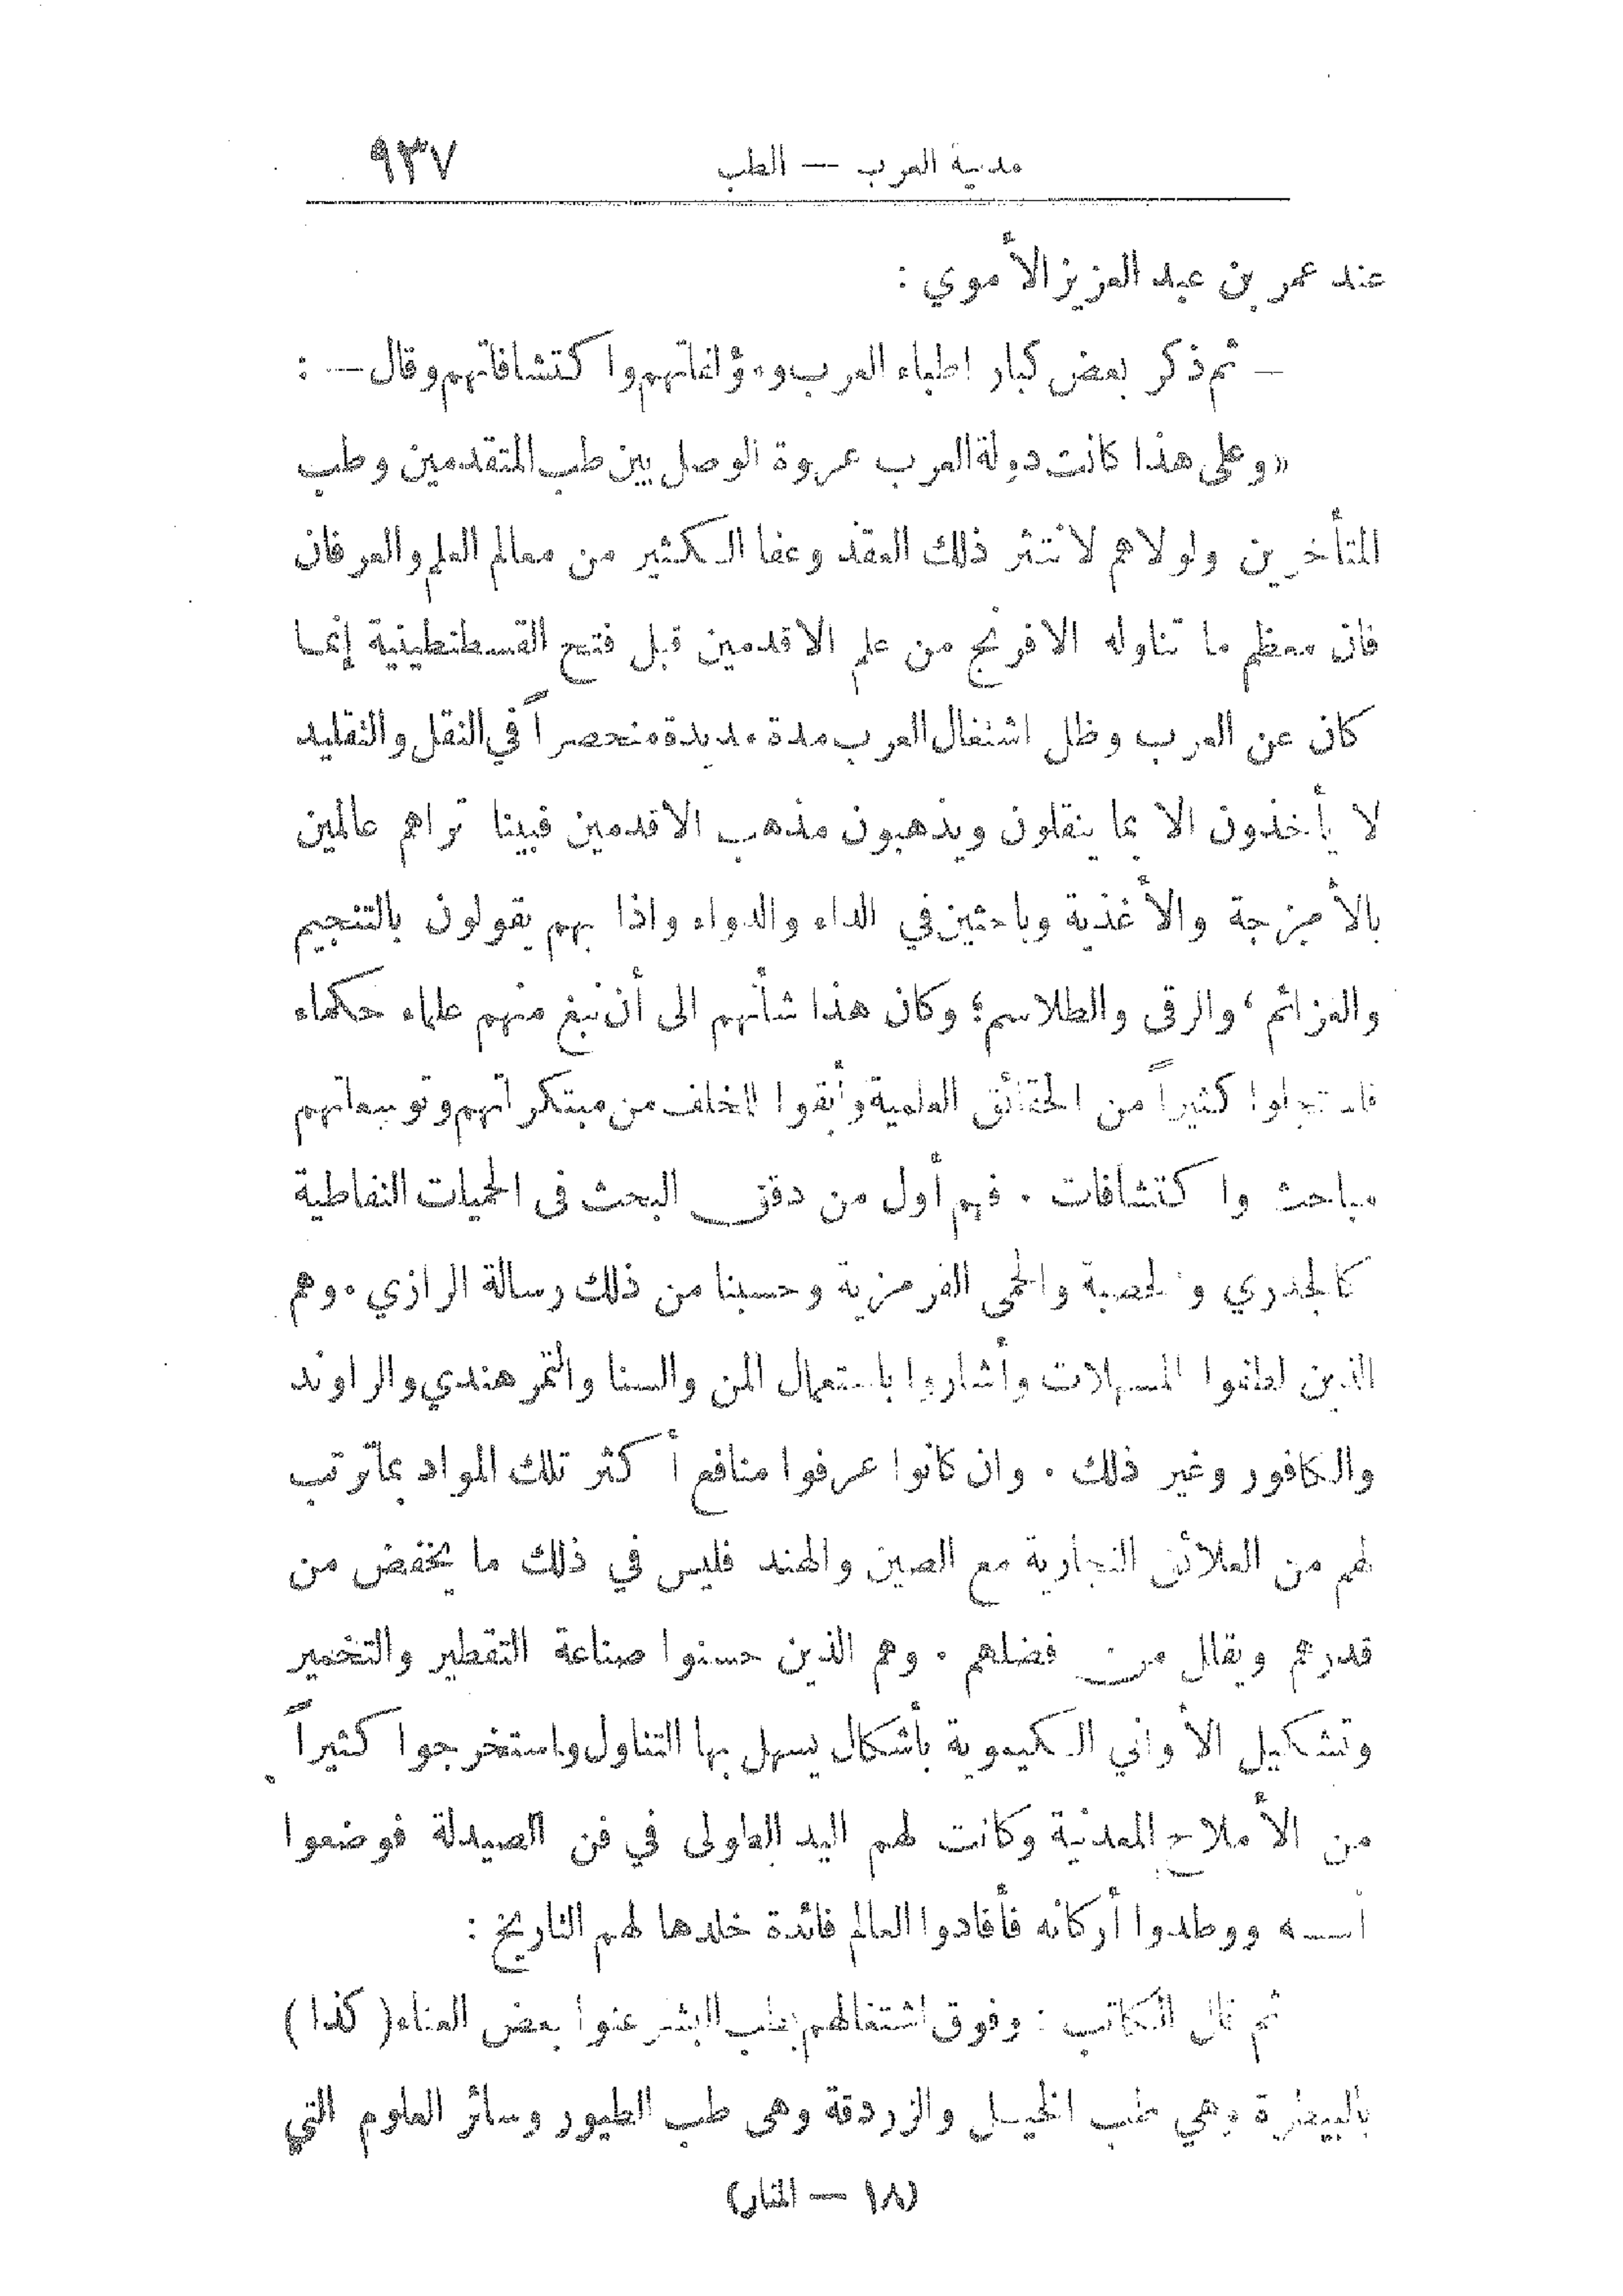 مدنية العرب — الطب ٩٣٧
عند عمر بن عبد العزيز الأموي :
— ثم ذكر بعض كبار اطباء العرب ومؤلفاتهم واكتشافاتهم وقال — :
«وعلى هذا كانت دولة العرب عروة الوصل بين طب المتقدمين وطب
المتأخرين ولولاهم لانتثر ذلك العقد وعفا الكثير من معالم العلم والعرفان
فان معظم ما تناوله الافرنج من علم الاقدمين قبل فتح القسطنطينية إنما
كان عن العرب وظل اشتغال العرب مدة مديدة منحصراً في النقل والتقليد
لا يأخذون الا بما ينقلون ويذهبون مذهب الاقدمين فبينا تراهم عالمين
بالأمزجة والأغذية وباحثين في الداء والدواء واذا بهم يقولون بالتنجيم
والعزائم ، والرقى والطلاسم ؛ وكان هذا شأنهم الى أن نبغ منهم علماء حكماء
فاستجلوا كثيراً من الحقائق العلمية وأبقوا للخلف من مبتكراتهم وتوسعاتهم
مباحث واكتشافات . فهم أول من دقق البحث في الحميات النفاطية
كالجدري والحصبة والحمى القرمزية وحسبنا من ذلك رسالة الرازي . وهم
الذين لطفوا المسهلات وأشاروا باستعمال المن والسنا والتمر هندي والراوند
والكافور وغير ذلك . وان كانوا عرفوا منافع أكثر تلك المواد بما ترتب
لهم من العلائق التجارية مع الصين والهند فليس في ذلك ما يخفض من
قدرهم ويقلل من فضلهم . وهم الذين حسنوا صناعة التقطير والتخمير
وتشكيل الأواني الكيموية بأشكال يسهل بها التناول واستخرجوا كثيراً
من الأملاح المعدنية وكانت لهم اليد الطولى في فن الصيدلة فوضعوا
أسسه ووطدوا أركانه فأفادوا العالم فائدة خلدها لهم التاريخ :
ثم قال الكاتب : وفوق اشتغالهم بطب البشر عنوا بعض العناء ( كذا )
بالبيطرة وهي طب الخيل والزردقة وهي طب الطيور وسائر العلوم التي
(١٨ — المنار)